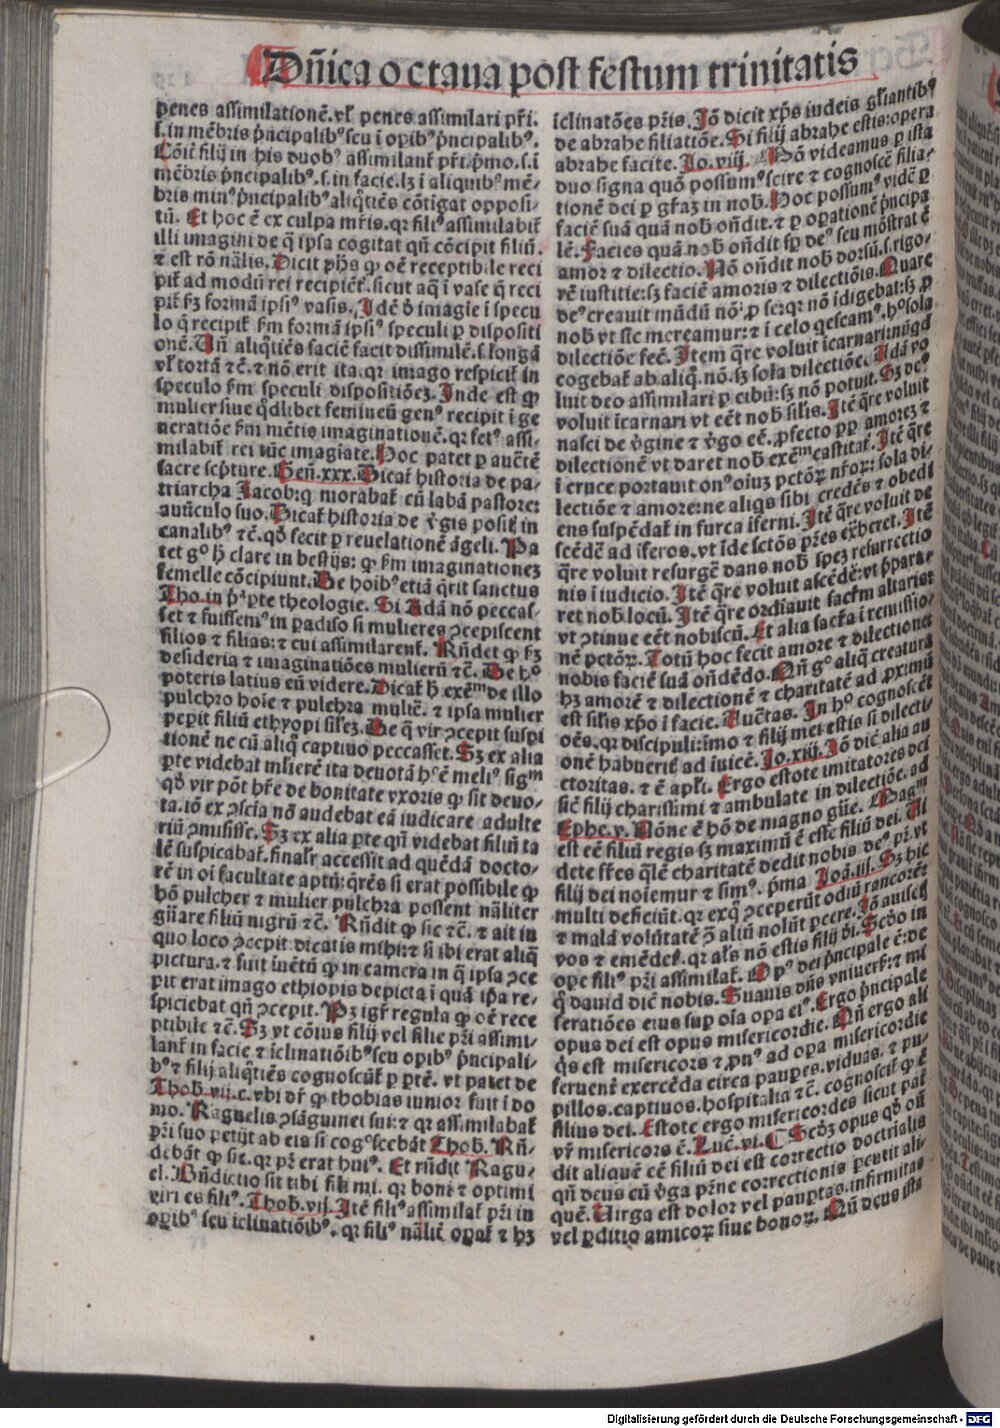 Dñica octaua post festum trinitatis
penes assimilationẽ. vł penes assimilari pr̃i.
ſ. in mẽbris p̃ncipalibꝰ seu i opibꝰ p̃ncipalibꝰ.
Cõit̃ filij in his duobꝰ assimilant̃ pr̃i. p̃mo. s. i
mẽbris p̃ncipalibꝰ. s. in facie. lꝫ i aliquibꝰ mẽ-
bris minꝰ p̃ncipalibꝰ aliq̃tiẽs cõtĩgat opposi-
tũ. Et hoc ẽ ex culpa mr̃is. qꝛ filiꝰ assimilabit̃
illi imagini de q̃ ipsa cogitat qñ cõcipit filiũ.
⁊ est rõ nãlis. Dicit ph̃s ꝙ oẽ receptibile reci
pit̃ ad modũ rei recipiẽt̃. sicut aq̃ i vase q̃ reci
pit̃ fꝫ formã ipsiꝰ vasis. Idẽ ð imagie i specu
lo q̃ recipit̃ fm formã ipsiꝰ speculi ꝑ dispositi
onẽ. Uñ aliq̃tiẽs faciẽ facit dissimilẽ. s. longã
vł tortã ⁊c̃. ⁊ nõ erit ita. qꝛ imago respicit̃ in
speculo fm speculi dispositiõeꝫ. Inde est ꝙ
mulier siue q̃dlibet femineũ genꝰ recipit i ge
neratiõe fm mẽtis imaginationẽ. qꝛ fetꝰ assi-
milabit̃ rei tũc imagiate. Hoc patet ꝑ auctẽ
sacre scp̃ture. Geñ. xxx. Dicat̃ historia de pa-
triarcha Jacob: q̃ morabat̃ cũ labã pastore:
auũculo suo. Dicat̃ historia de ṽgis posit̃ in
canalibꝰ ⁊c̃. qð fecit ꝑ reuelationẽ ãgeli. Pa
tet gº h̃ clare in bestijs: ꝙ fm imaginationeꝫ
femelle cõcipiunt. De hoĩbꝰ etiã q̃rit sanctus
Tho. in p̃ª pte theologie. Si Adã nõ peccas-
set ⁊ fuissemꝰ in padiso si mulieres ↄcepiscent
filios ⁊ filias: ⁊ cui assimilarent̃. Rñdet ꝙ fꝫ
desideria ⁊ imaginatiões mulierũ ⁊c̃. De hº
poteris latius eũ videre. Dicat̃ h̃ exẽm de illo
pulchro hoie ⁊ pulchra muliẽ. ⁊ ipsa mulier
pepit filiũ ethyopi sil̃eꝫ. De q̃ vir ↄcepit suspi
tionẽ ne cũ aliq̃ captiuo peccasset. Sꝫ ex alia
pte videbat ml̃ierẽ ita deuotã hº ẽ meliꝰ sigm
qð vir põt hr̃e de bonitate vxoris ꝙ sit deuo-
ta. iõ ex ↄscia nõ audebat eã iudicare adulte
riũ ↄmisisse. Sꝫ ex alia pte qñ videbat filiũ ta
lẽ suspicabat̃. finalr̃ accessit ad quẽdã docto-
rẽ in oi facultate aptũ: q̃rẽs si erat possibile ꝙ
hõ pulcher ⁊ mulier pulchra possent nãliter
gñare filiũ nigrũ ⁊c̃. Rñdit ꝙ sic ⁊c̃. ⁊ ait in
quo loco ↄcepit: dicatis mihi: ⁊ si ibi erat aliq̃
pictura. ⁊ fuit ĩuẽtũ ꝙ in camera in q̃ ipsa ↄce
pit erat imago ethiopis depicta i quã ip̃a re-
spiciebat qñ ↄcepit. Pꝫ igr̃ regula ꝙ oẽ rece
ptibile ⁊c̃. Sꝫ vt cõius filij vel filie pr̃i assimi-
lant̃ in facie ⁊ iclinatiõibꝰ seu opibꝰ p̃ncipali-
bꝰ ⁊ filij aliq̃tiẽs cognoscũt̃ ꝑ ptẽ. vt patet de
Thob. vij. c. vbi dr̃ ꝙ thobias iunior fuit i do
mo. Raguelis ↄsãguinei sui: ⁊ qꝛ assimilabat̃
pr̃i suo petijt ab eis si cogºscebãt Thob. Rñ-
debãt ꝙ sic. qꝛ pr̃ erat huiꝰ. Et rñdit Ragu-
el. Bñdictio sit tibi fili mi. qꝛ boni ⁊ optimi
viri es filiꝰ. Thob. vij. Itẽ filiꝰ assimilat̃ pr̃i in
opibꝰ seu iclinatiõibꝰ. qꝛ filiꝰ nãlit̃ opat̃ ⁊ hꝫ
iclinatões pr̃is. Iõ dicit xp̃s iudeis gl̃iantibꝰ
de abrahe filiatiõe. Si filij abrahe estis: opera
abrahe facite. Jo. viij. Nõ videamus ꝑ ista
duo signa quõ possumꝰ scire ⁊ cognoscẽ filia-
tionẽ dei ꝑ gr̃aꝫ in nob. Hoc possumꝰ vidẽ ꝑ
faciẽ suã quã nob oñdit. ⁊ ꝑ oꝑationẽ p̃ncipa
lẽ. Facies quã nob oñdit sꝑ deꝰ seu mõstrat ẽ
amor ⁊ dilectio. Nõ oñdit nob dorsũ. s. rigo-
rẽ iustitie: sꝫ faciẽ amoris ⁊ dilectiõis. Quare
deꝰ creauit mũdũ nõ ꝓ se: qꝛ nõ ĩdigebat: sꝫ ꝓ
nob vt sic mereamur: ⁊ i celo qescamꝰ. hº sola
dilectiõe fec̃. Item q̃re voluit icarnari: nũqd
cogebat̃ ab aliq̃. nõ. sꝫ sola dilectiõe. Adã vo
luit deo assimilari ꝑ cibũ: sꝫ nõ potuit. Sꝫ deꝰ
voluit icarnari vt eẽt nob sil̃is. Itẽ q̃re voluit
nasci de ṽgine ⁊ ṽgo eẽ. ꝓfecto ꝓꝑ amoreꝫ ⁊
dilectionẽ vt daret nob exẽm castitat̃. Itẽ q̃re
i cruce portauit onꝰ oiuꝫ pctõꝝ nr̃oꝝ: sola di-
lectiõe ⁊ amore: ne aliqs sibi credẽs ⁊ obedi
ens suspẽdat̃ in furca iferni. Itẽ q̃re voluit de
scẽdẽ ad iferos. vt ĩde sctõs pr̃es ex̃beret. Itẽ
q̃re voluit resurgẽ dans nob speꝫ resurrectio
nis i iudicio. Itẽ q̃re voluit ascẽdẽ: vt p̃para-
ret nob locũ. Itẽ q̃re ordiauit sacr̃m altaris:
vt ↄtinue eẽt nobiscũ. Et alia sacr̃a i remissio-
nẽ pctõꝝ. Totũ hoc fecit amore ⁊ dilectione:
nobis faciẽ suã oñdẽdo. Qñ gº aliq̃ creatura
hꝫ amorẽ ⁊ dilectionẽ ⁊ charitatẽ ad ꝓximũ
est sil̃is xp̃o i facie. Auct̃as. In hº cognoscẽt
oẽs. qꝛ discipuli: ĩmo ⁊ filij mei estis si dilecti
onẽ habueris ad iuicẽ. Jo. xiij. Iõ dic̃ alia au
ctoritas. ⁊ ẽ apł̃i. Ergo estote imitatores dei
sic̃ filij charissimi ⁊ ambulate in dilectiõe. ad
Ephe. v. Nõne ẽ hõ de magno gñe. Magm̃
est eẽ filiũ regis sꝫ maximũ ẽ esse filiũ dei. Ui
dete fr̃es q̃lẽ charitatẽ dedit nobis deꝰ pr̃. vt
filij dei noiemur ⁊ simꝰ. p̃ma Joã. iij. Sꝫ hic
multi deficiũt. qꝛ exq̃ ↄceperũt odiũ rancorẽ
⁊ malã volũtatẽ ↄ̃ aliũ nolũt pcere. Iõ auisest̃
vos ⁊ emẽdet̃. qꝛ al̃s nõ estis filij di. Scðo in
ope filiꝰ pr̃i assimilat̃. Opꝰ dei p̃ncipale ẽ: de
q̃ dauid dic̃ nobis. Suauis dñs vniuers̃: ⁊ mi
seratiões eius suꝑ oĩa opa eiꝰ. Ergo p̃ncipale
opus dei est opus misericordie. Qñ ergo ali
q̃s est misericors ⁊ ꝓnꝰ ad opa misericordie
feruent exercẽda circa pauꝑes. viduas. ⁊ pu-
pillos. captiuos. hospitalia ⁊c̃. cognoscit̃ ꝙ ẽ
filius dei. Estote ergo misericordes sicut pat̃
vr̃ misericors ẽ. Luc̃. vi. ¶ Scðꝫ opus qð oñ
dit aliquẽ eẽ filiũ dei est correctio doctrialis
qñ deus cũ ṽga p̃rne correctionis pcutit ali-
quẽ. Uirga est dolor vel pauptas. infirmitas
vel ꝑditio amicoꝝ siue bonoꝝ. Qñ deus ista
Digitalisierung gefördert durch die Deutsche Forschungsgemeinschaft - DFG